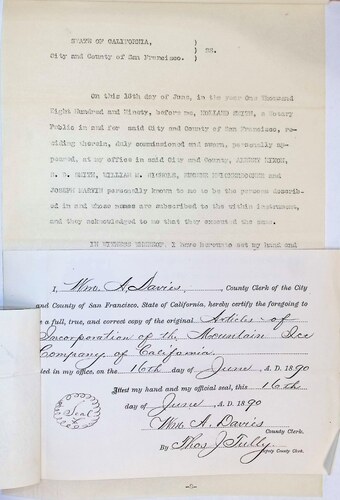 STATE OF CALIFORNIA, )
) SS.
City and County of San Francisco. )
On this 16th day of June, in the year One Thousand
Eight Hundred and Ninety, before me, HOLLAND SMITH, a Notary
Public in and for said City and County of San Francisco, re-
siding therein, duly commissioned and sworn, personally ap-
peared, at my office in said City and County,
SMITH, WILLIAM
and
JOSEPH personally known to me to be the persons describ-
ed in and whose names are subscribed to the within instrument,
and they acknowledged to me that they executed the same.
IN WITNESS WHEREOF, I have hereunto set my hand and
I, Wm. A. Davies, County Clerk of the City
and County of San Francisco, State of California, hereby certify the foregoing to
be a full, true, and correct copy of the original Articles of
Incorporation of the Mountain Ice
Company of California
filed in my office, on the 16th day of June A. D. 1890
Attest my hand and my official seal, this 16th
day of June A. D. 1890
Seal
Wm. A. Davies
County Clerk.
By Thos J Tully
Deputy County Clerk.